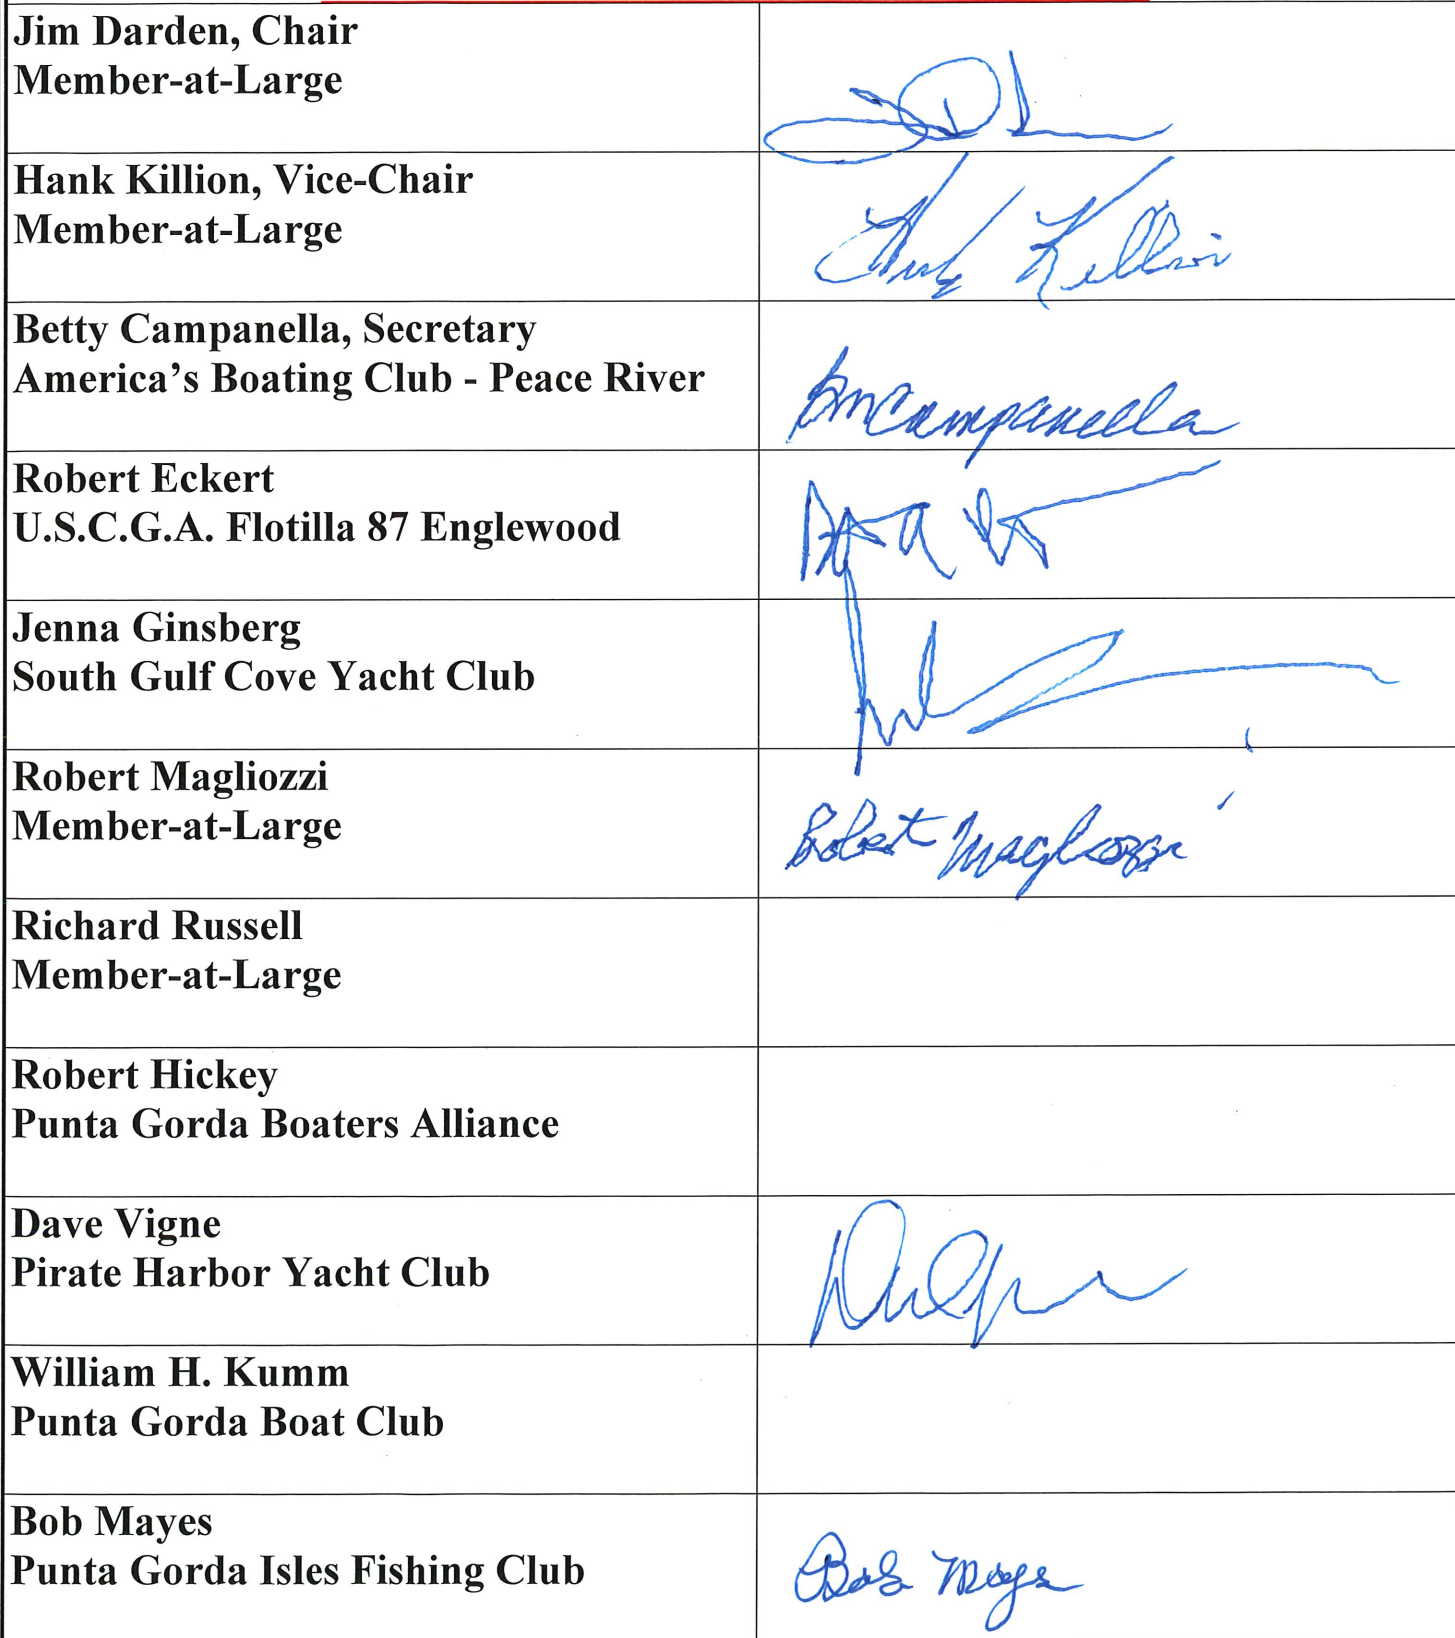 Jim Darden, Chair
Member-at-Large
Hank Killion, Vice-Chair
Member-at-Large
Hank Killion
Betty Campanella, Secretary
America's Boating Club - Peace River
BMCampanella
Robert Eckert
U.S.C.G.A. Flotilla 87 Englewood
Jenna Ginsberg
South Gulf Cove Yacht Club
Robert Magliozzi
Member-at-Large
Robert Magliozzi
Richard Russell
Member-at-Large
Robert Hickey
Punta Gorda Boaters Alliance
Dave Vigne
Pirate Harbor Yacht Club
William H. Kumm
Punta Gorda Boat Club
Bob Mayes
Punta Gorda Isles Fishing Club
Bob Mayes